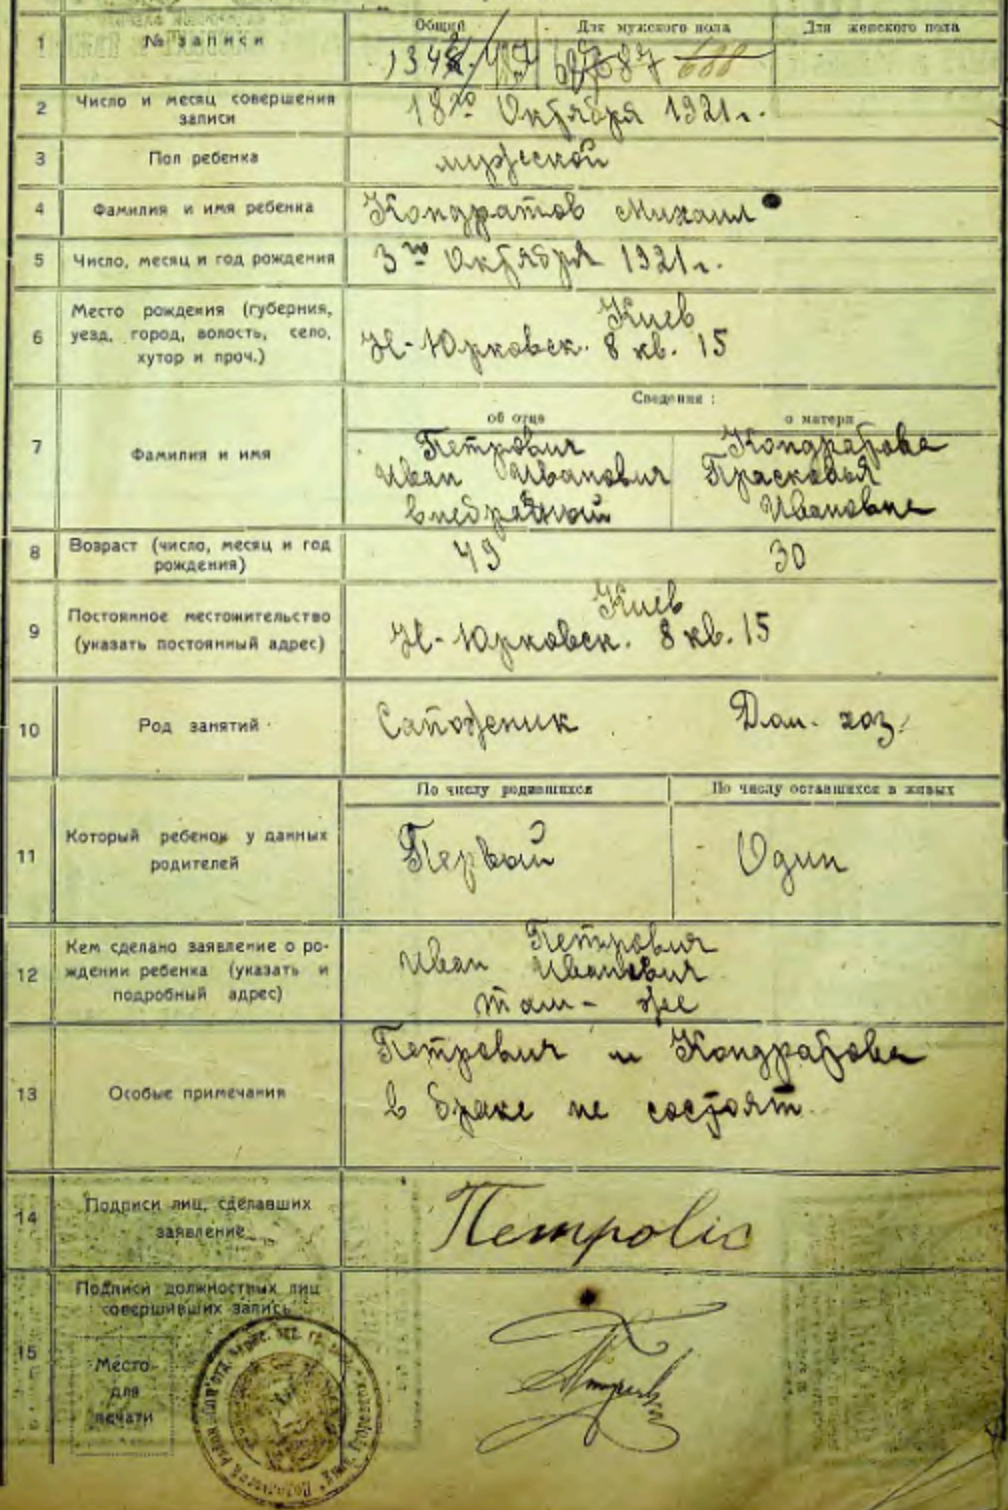 1
№ записи
Общий
Для мужского пола
Для женского пола
688
2
Число и месяц совершения
записи
18го Октября 1921г.
3
Пол ребенка
мужеской
4
Фамилия и имя ребенка
Кондратов Михаил
5
Число, месяц и год рождения
3го Октября 1921г.
6
Место рождения (губерния,
уезд, город, волость, село,
хутор и проч.)
Киев
Н-Юрковск. 8 кв. 15
7
Фамилия и имя
Сведения:
об отце
о матери
Петрович
Иван Иванович
внебрачный
Кондратова
Прасковья
Ивановна
8
Возраст (число, месяц и год
рождения)
49
30
9
Постоянное местожительство
(указать постоянный адрес)
Киев
Н-Юрковск. 8 кв. 15
10
Род занятий
Сапожник
Дом. хоз.
11
Который ребенок у данных
родителей
По числу родившихся
По числу оставшихся в живых
Первый
Один
12
Кем сделано заявление о ро-
ждении ребенка (указать и
подробный адрес)
Петрович
Иван Иванович
там-же
13
Особые примечания
Петрович и Кондратова
в браке не состоят.
14
Подписи лиц, сделавших
заявление
Петроviс
15
Подписи должностных лиц
совершивших запись
Место
для
печати